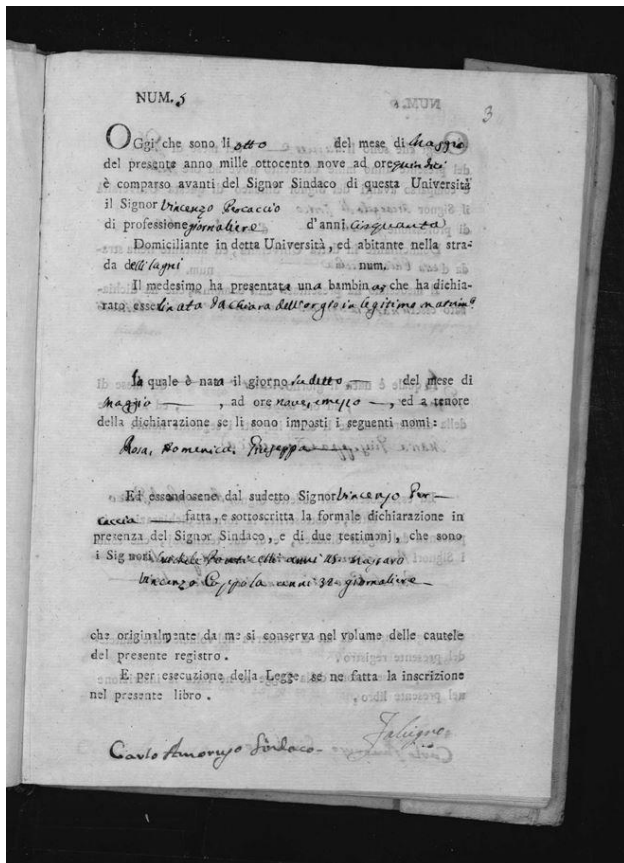 NUM. 5
3
OGgi che sono li otto del mese di Maggio
del presente anno mille ottocento nove ad ore quindici
è comparso avanti del Signor Sindaco di questa Università
il Signor Vincenzo Percaccio
di professione giornaliere d'anni Cinquanta
Domiciliante in detta Università, ed abitante nella stra-
da delli num.
Il medesimo ha presentata una bambina, che ha dichia-
rato essere nata da Chiara in legitimo
la quale è nata il giorno sudetto del mese di
Maggio , ad ore nove, e mezzo , ed a tenore
della dichiarazione se li sono imposti i seguenti nomi:
Rosa, Domenica, Giuseppa
Ed essendosene dal sudetto Signor Vincenzo Per-
caccia fatta, e sottoscritta la formale dichiarazione in
presenza del Signor Sindaco, e di due testimonj, che sono
i Signori anni
Vincenzo Coppola anni 32 giornaliere
che originalmente da me si conserva nel volume delle cautele
del presente registro.
E per esecuzione della Legge se ne fatta la inscrizione
nel presente libro.
Carlo Amoruso Sindaco